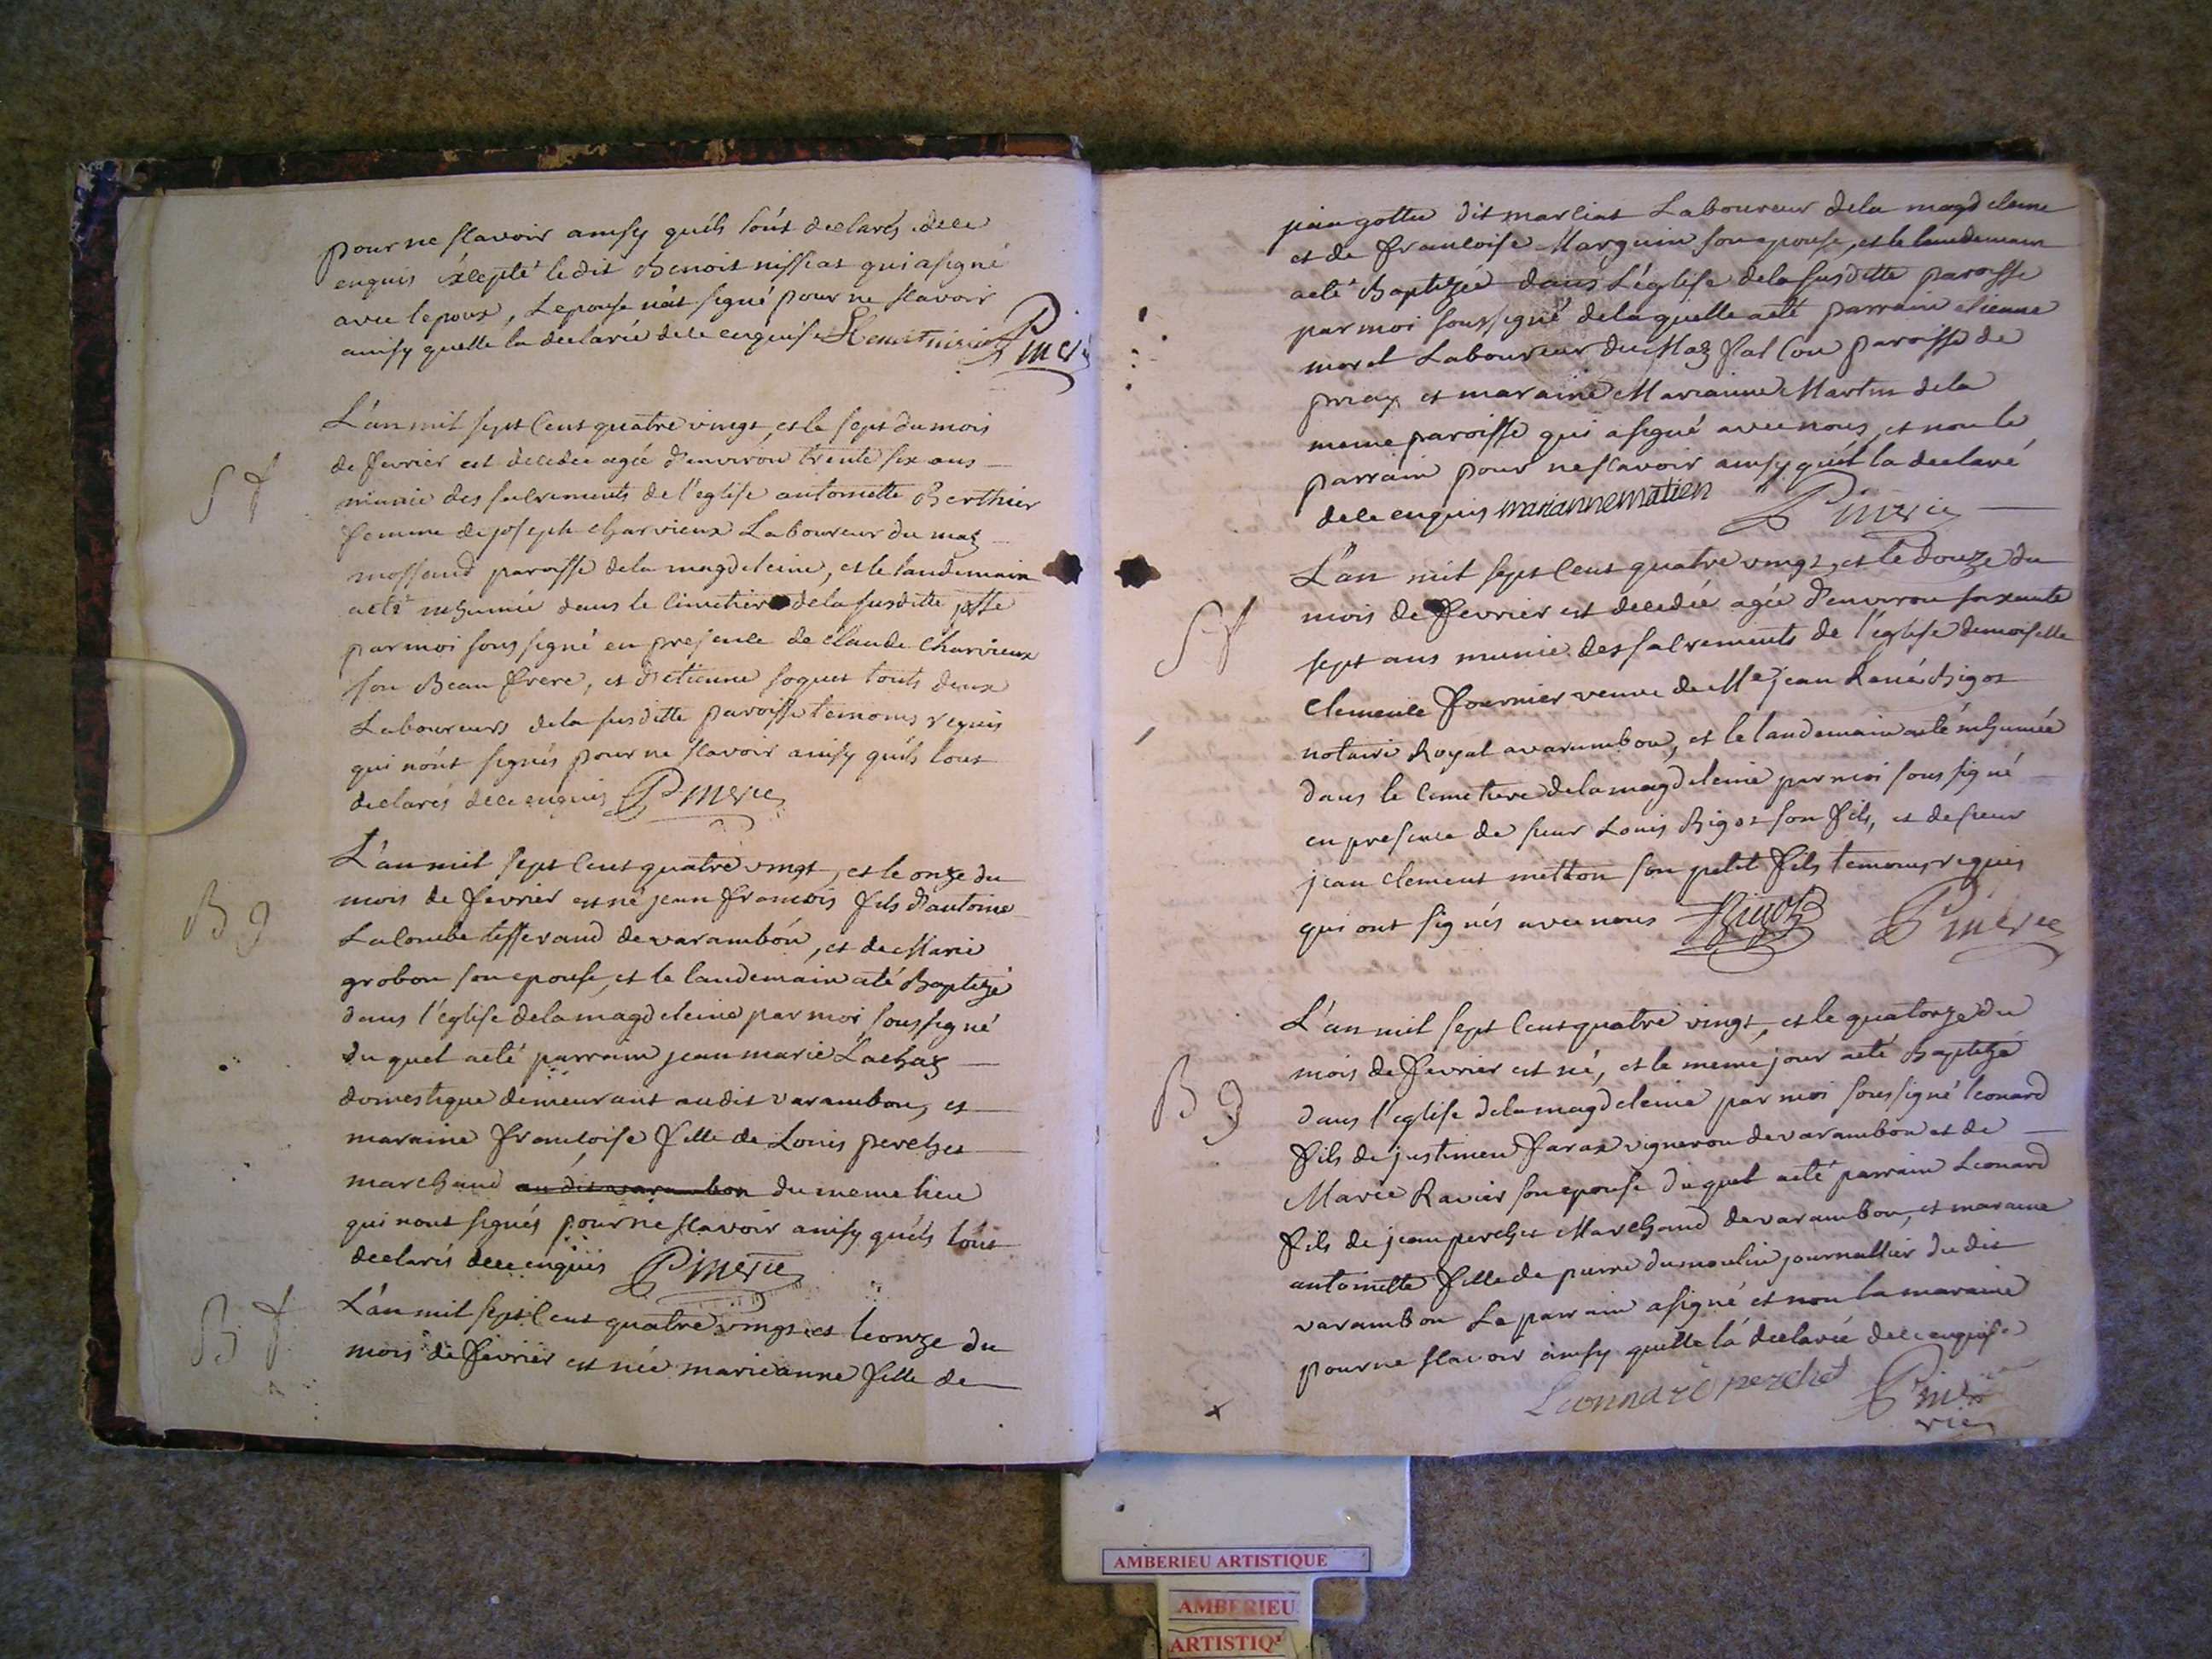 pour ne scavoir ainsy quéls lónt declarés dece
enquis éxcepté ledit Benoit nissiat qui a signé
avec l'epoux, L'epouse nát signé pour ne scavoir
ainsy quelle la declarée dece enquise
L'an mil sept Cent quatre vingt, et le sept du mois
S f
de fevrier est decedée agée d'environ trente six ans
munie des sacrements de l'eglise antoinette Berthier
femme de joseph charvieux Laboureur du maz
paroisse dela magdeleine, et le landemain
a eté inhumée dans le cimetiere dela susditte psse
par moi soussigné en presence de claude Charvieux
son Beau frere, et d'etienne soquet touts deux
Laboureurs dela susditte paroisse temoins requis
qui nónt signés pour ne scavoir ainsy quéls lont
declarés dece enquis
L'an mil sept Cent quatre vingt, et le onze du
B g
mois de fevrier est né jean francois fils d'antoine
Lacombe tisserand de varambón, et de Marie
grobon son epouse, et le landemain a eté Baptizé
dans l'église dela magdeleine par moi soussigné
du quel a eté parrain jean marie Lachaz
domestique demeurant au dit varambon, et
maraine francoise fille de Louis perchet
marchand au dit varambon du meme lieu
qui nont signés pour ne scavoir ainsy quéls lónt
declarés dece enquis
B f
L'an mil sept Cent quatre vingt et le onze du
mois de fevrier est née marieanne fille de
jean gottu dit marliat Laboureur dela magdeleine
et de francoise Marguin son epouse, et le landemain
a eté Baptizée dans L'église dela susditte paroisse
par moi soussigné de laquelle a eté parrain etienne
morel Laboureur du Maz paroisse de
priay et maraine Marianne Martin dela
meme paroisse qui a signé avec nous, et non le
parrain pour ne scavoir ainsy quíl la declaré
dece enquis
L'an mil sept Cent quatre vingt, et le douze du
S f
mois de fevrier est decedée agée d'environ soixante
sept ans munie des sacrements de l'eglise demoiselle
clemence fournier veuve de Me jean René Bigot
notaire Royal a varambon, et le landemain a eté inhumée
dans le cimetiere dela magdeleine par moi soussigné
en presence de sieur Louis Bigot son fils, et de sieur
jean clement metton son petit fils temoins requis
qui ont signés avec nous
L'an mil sept Cent quatre vingt, et le quatorze du
B g
mois de fevrier est né, et le meme jour a eté Baptizé
dans l'eglise dela magdeleine par moi soussigné leonard
fils de justinien faras vigneron de varambon et de
Marie Ravier son epouse du quel a eté parrain Leonard
fils de jean perchet Marchand de varambon, et maraine
antoinette fille de pierre dumoulin journallier du dit
varambon Le parrain a signé et non la maraine
pour ne scavoir ainsy quelle lá declarée dece enquise
perchet
AMBERIEU ARTISTIQUE
AMBERIEU
ARTISTIQ